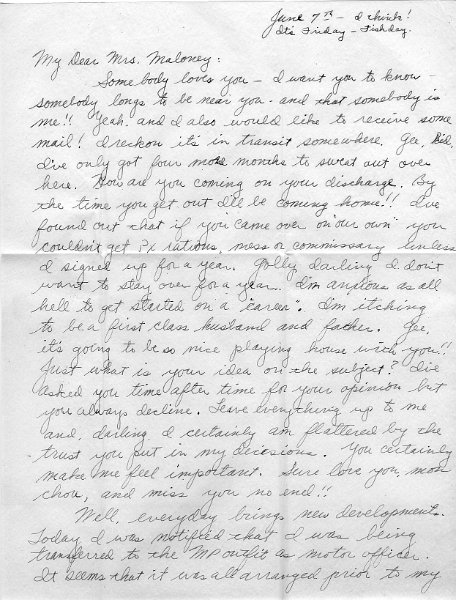 June 7th - I think!
It's Friday - Fishday.
My Dear Mrs. Maloney:
Somebody loves you - I want you to know -
somebody longs to be near you - and that somebody is
me!! Yeah! and I also would like to receive some
mail! I reckon it's in transit somewhere. Gee, Kid,
I've only got four more months to sweat out over
here. How are you coming on your discharge. By
the time you get out I'll be coming home!! I've
found out that if you came over on "our own" you
couldn't get Px rations, mess or commissary unless
I signed up for a year. Golly, darling I don't
want to stay over for a year. I'm anxious as all
hell to get started on a "career". I'm itching
to be a first class husband and father. Gee,
it's going to be so nice playing house with you!!
Just what is your idea on the subject? I've
asked you time after time for your opinion but
you always decline. Leave everything up to me
and, darling I certainly am flattered by the
trust you put in my decisions. You certainly
make me feel important. Sure love you, mon
chou, and miss you no end!!
Well, everyday brings new developments.
Today I was notified that I was being
transferred to the MP outfit as motor officer.
It seems that it was all arranged prior to my